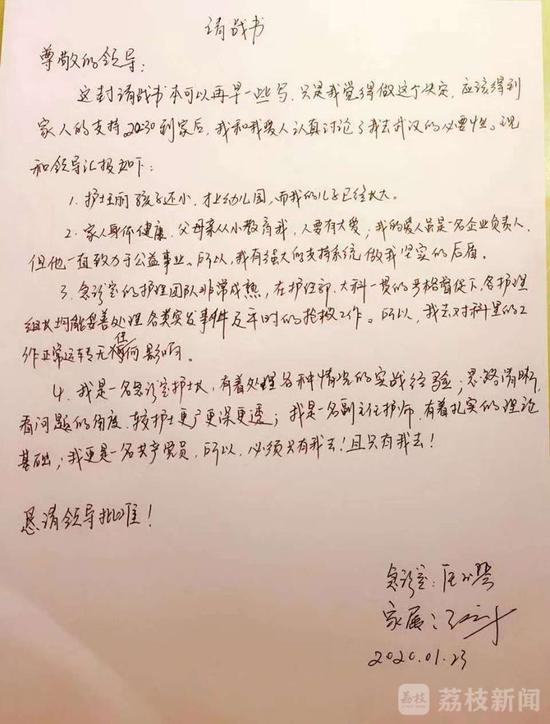 请战书
尊敬的领导：
这封请战书本可以再早一些写，只是我觉得做这个决定，应该得到
家人的支持。20:30到家后，我和我爱人认真讨论了我去武汉的必要性。现
和领导汇报如下：
1. 护士 孩子还小，才上幼儿园，而我的儿子已经长大。
2. 家人身体健康，父母亲从小教育我，人要有大爱，我的爱人虽是一名企业负责人，
但他一直致力于公益事业。所以，我有强大的支持系统做我坚实的后盾。
3. 急诊室的护理团队非常成熟，在护理部、大科一贯的严格督促下，各护理
组长均能妥善处理各类突发事件及平时的抢救工作。所以，我去对科里的工
作正常运转无任何影响。
4. 我是一名急诊室护士长，有着处理各种情况的实战经验；思路清晰，
看问题的角度，较护士更 更深更透；我是一名副主任护师，有着扎实的理论
基础；我更是一名共产党员，所以，必须只有我去！且只有我去！
恳请领导批准！
急诊室：
家属：
2020.01.23
荔枝 荔枝新闻